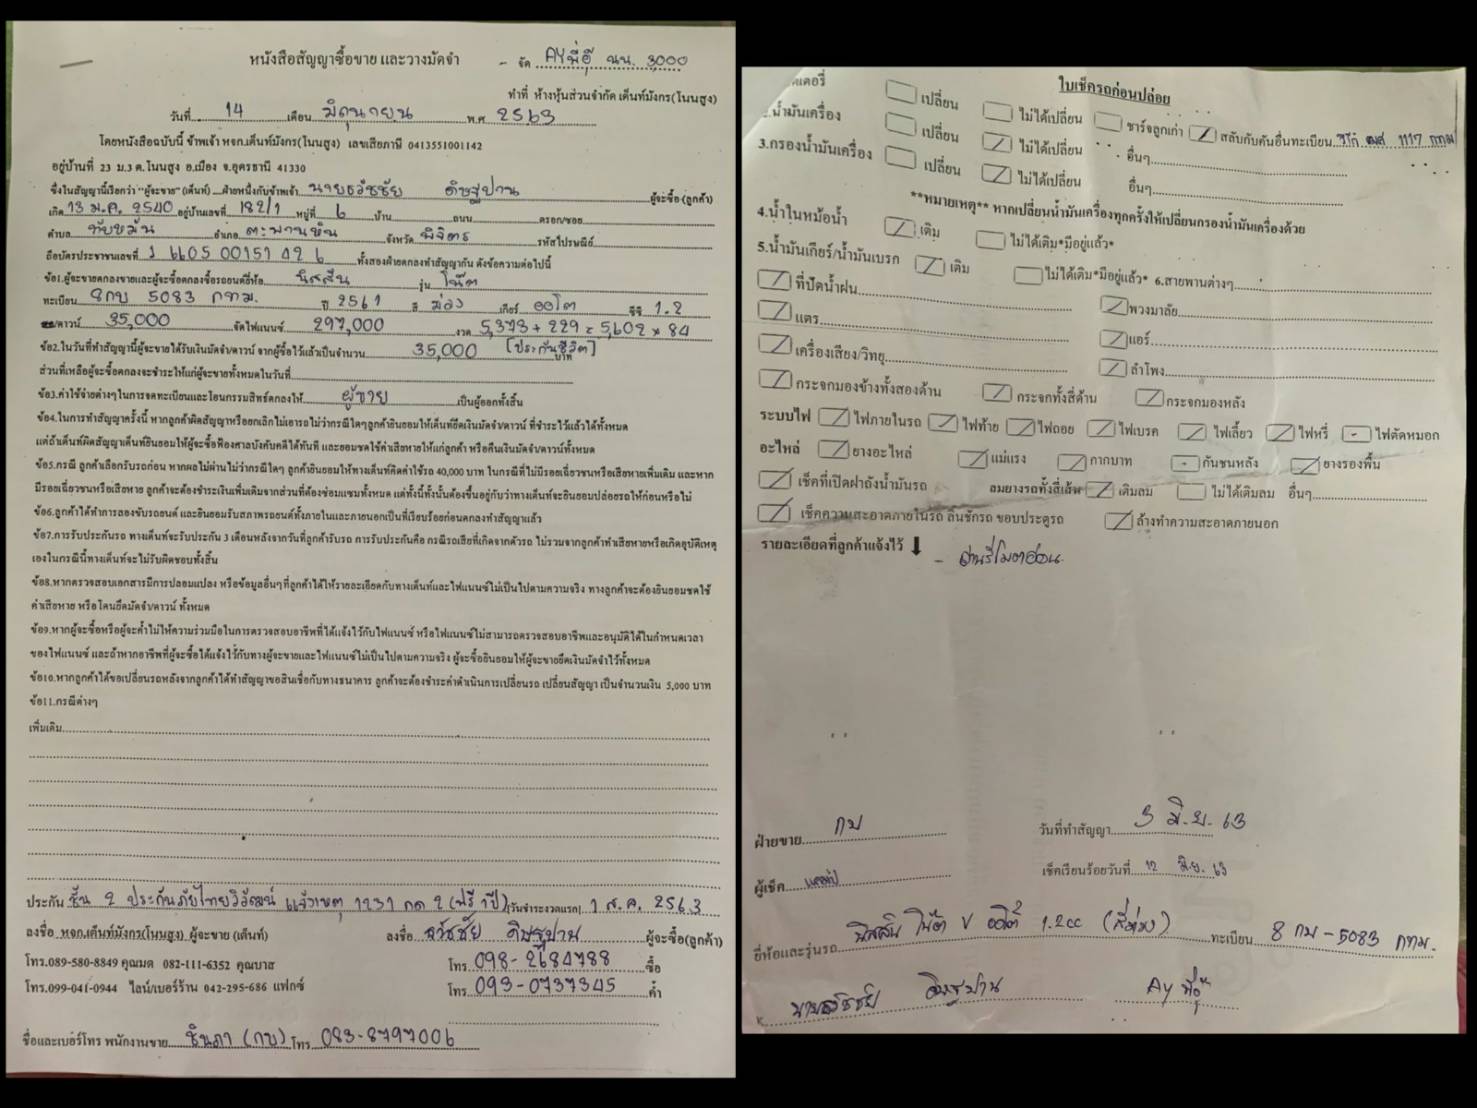 หนังสือสัญญาซื้อขาย และวางมัดจำ
- จัด AY พี่อู๊ นน. 3,000
ทำที่ ห้างหุ้นส่วนจำกัด เต็นท์มังกร(โนนสูง)
วันที่ 14 เดือน มิถุนายน พ.ศ 2563
โดยหนังสือฉบับนี้ ข้าพเจ้า หจก.เต็นท์มังกร(โนนสูง) เลขเสียภาษี 0413551001142
อยู่บ้านที่ 23 ม.3 ต.โนนสูง อ.เมือง จ.อุดรธานี 41330
ซึ่งในสัญญานี้เรียกว่า "ผู้จะขาย" (เต็นท์) ฝ่ายหนึ่งกับข้าพเจ้า นายธวัชชัย ดิษฐปาน ผู้จะซื้อ (ลูกค้า)
เกิด 13 ม.ค. 2540 อยู่บ้านเลขที่ 182/1 หมู่ที่ 6 บ้าน ถนน ตรอก/ซอย
ตำบล ทับหมัน อำเภอ ตะพานหิน จังหวัด พิจิตร รหัสไปรษณีย์
ถือบัตรประชาชนเลขที่ 1 6605 00151 42 6 ทั้งสองฝ่ายตกลงทำสัญญากัน ดังข้อความต่อไปนี้
ข้อ1.ผู้จะขายตกลงขายและผู้จะซื้อตกลงซื้อรถยนต์ยี่ห้อ นิสสัน รุ่น โน๊ต
ทะเบียน 8กบ 5083 กทม. ปี 2561 สี ม่วง เกียร์ ออโต ซีซี 1.2
ดาวน์ 35,000 จัดไฟแนนซ์ 297,000 งวด 5,373 + 229 = 5,602 x 84
ข้อ2.ในวันที่ทำสัญญานี้ผู้จะขายได้รับเงินมัดจำ/ดาวน์ จากผู้ซื้อไว้แล้วเป็นจำนวน 35,000 บาท [ประกันชีวิต]
ส่วนที่เหลือผู้จะซื้อตกลงจะชำระให้แก่ผู้จะขายทั้งหมดในวันที่
ข้อ3.ค่าใช้จ่ายต่างๆในการจดทะเบียนและโอนกรรมสิทธ์ตกลงให้ ผู้ขาย เป็นผู้ออกทั้งสิ้น
ข้อ4.ในการทำสัญญาครั้งนี้ หากลูกค้าผิดสัญญาหรือยกเลิกไม่เอารถไม่ว่ากรณีใดๆ ลูกค้ายินยอมให้เต็นท์ยึดเงินมัดจำ/ดาวน์ ที่ชำระไว้แล้วได้ทั้งหมด
แต่ถ้าเต็นท์ผิดสัญญาเต็นท์ยินยอมให้ผู้จะซื้อฟ้องศาลบังคับคดีได้ทันที และยอมชดใช้ค่าเสียหายให้แก่ลูกค้า หรือคืนเงินมัดจำ/ดาวน์ทั้งหมด
ข้อ5.กรณี ลูกค้าเลือกรับรถก่อน หากผลไม่ผ่านไม่ว่ากรณีใดๆ ลูกค้ายินยอมให้ทางเต็นท์คิดค่าใช้รถ 40,000 บาท ในกรณีที่ไม่มีรอยเฉี่ยวชนหรือเสียหายเพิ่มเติม และหาก
มีรอยเฉี่ยวชนหรือเสียหาย ลูกค้าจะต้องชำระเงินเพิ่มเติมจากส่วนที่ต้องซ่อมแซมทั้งหมด แต่ทั้งนี้ทั้งนั้นต้องขึ้นอยู่กับว่าทางเต็นท์จะยินยอมปล่อยรถให้ก่อนหรือไม่
ข้อ6.ลูกค้าได้ทำการลองขับรถยนต์ และยินยอมรับสภาพรถยนต์ทั้งภายในและภายนอกเป็นที่เรียบร้อยก่อนตกลงทำสัญญาแล้ว
ข้อ7.การรับประกันรถ ทางเต็นท์จะรับประกัน 3 เดือนหลังจากวันที่ลูกค้ารับรถ การรับประกันคือ กรณีรถเสียที่เกิดจากตัวรถ ไม่รวมจากลูกค้าทำเสียหายหรือเกิดอุบัติเหตุ
เองในกรณีนี้ทางเต็นท์จะไม่รับผิดชอบทั้งสิ้น
ข้อ8.หากตรวจสอบเอกสารมีการปลอมแปลง หรือข้อมูลอื่นๆที่ลูกค้าได้ให้รายละเอียดกับทางเต็นท์และไฟแนนซ์ไม่เป็นไปตามความจริง ทางลูกค้าจะต้องยินยอมชดใช้
ค่าเสียหาย หรือโดนยึดมัดจำ/ดาวน์ ทั้งหมด
ข้อ9.หากผู้จะซื้อหรือผู้จะค้ำไม่ให้ความร่วมมือในการตรวจสอบอาชีพที่ได้แจ้งไว้กับไฟแนนซ์ หรือไฟแนนซ์ไม่สามารถตรวจสอบอาชีพและอนุมัติได้ในกำหนดเวลา
ของไฟแนนซ์ และถ้าหากอาชีพที่ผู้จะซื้อได้แจ้งไว้กับทางผู้จะขายและไฟแนนซ์ไม่เป็นไปตามความจริง ผู้จะซื้อยินยอมให้ผู้จะขายยึดเงินมัดจำไว้ทั้งหมด
ข้อ10.หากลูกค้าได้ขอเปลี่ยนรถหลังจากลูกค้าได้ทำสัญญาขอสินเชื่อกับทางธนาคาร ลูกค้าจะต้องชำระค่าดำเนินการเปลี่ยนรถ เปลี่ยนสัญญา เป็นจำนวนเงิน 5,000 บาท
ข้อ11.กรณีต่างๆ
เพิ่มเติม
ประกัน ชั้น 2 ประกันภัยไทยวิวัฒน์ แจ้งเหตุ 1231 กด 2 (ฟรี 1ปี) (วันชำระงวดแรก) 1 ส.ค. 2563
ลงชื่อ หจก.เต็นท์มังกร(โนนสูง) ผู้จะขาย (เต็นท์) ลงชื่อ ธวัชชัย ดิษฐปาน ผู้จะซื้อ(ลูกค้า)
โทร.089-580-8849 คุณมด 082-111-6352 คุณบาส โทร 098-2684788 ซื้อ
โทร.099-041-0944 ไลน์/เบอร์ร้าน 042-295-686 แฟกซ์ โทร 093-0737345 ค้ำ
ชื่อและเบอร์โทร พนักงานขาย ชินภา (กบ) โทร 083-8797006
ใบเช็ครถก่อนปล่อย
เปลี่ยน ไม่ได้เปลี่ยน ชาร์จลูกเก่า สลับกับคันอื่นทะเบียน 1117 กทม
น้ำมันเครื่อง เปลี่ยน ไม่ได้เปลี่ยน อื่นๆ
3.กรองน้ำมันเครื่อง เปลี่ยน ไม่ได้เปลี่ยน อื่นๆ
**หมายเหตุ** หากเปลี่ยนน้ำมันเครื่องทุกครั้งให้เปลี่ยนกรองน้ำมันเครื่องด้วย
4.น้ำในหม้อน้ำ เติม ไม่ได้เติม*มีอยู่แล้ว*
5.น้ำมันเกียร์/น้ำมันเบรก เติม ไม่ได้เติม*มีอยู่แล้ว* 6.สายพานต่างๆ
ที่ปัดน้ำฝน พวงมาลัย
แตร แอร์
เครื่องเสียง/วิทยุ ลำโพง
กระจกมองข้างทั้งสองด้าน กระจกทั้งสี่ด้าน กระจกมองหลัง
ระบบไฟ ไฟภายในรถ ไฟท้าย ไฟถอย ไฟเบรค ไฟเลี้ยว ไฟหรี่ - ไฟตัดหมอก
อะไหล่ ยางอะไหล่ แม่แรง กากบาท - กันชนหลัง ยางรองพื้น
เช็คที่เปิดฝาถังน้ำมันรถ ลมยางรถทั้งสี่เส้น เติมลม ไม่ได้เติมลม อื่นๆ
เช็คความสะอาดภายในรถ ลิ้นชักรถ ขอบประตูรถ ล้างทำความสะอาดภายนอก
รายละเอียดที่ลูกค้าแจ้งไว้ ↓
ฝ่ายขาย กบ วันที่ทำสัญญา 3 มิ.ย. 63
ผู้เช็ค เช็คเรียบร้อยวันที่ 12 มิย. 63
ยี่ห้อและรุ่นรถ นิสสัน โน๊ต V ออโต้ 1.2cc (สีม่วง) ทะเบียน 8 กบ - 5083 กทม.
นายธวัชชัย ดิษฐปาน AY พี่อู๊